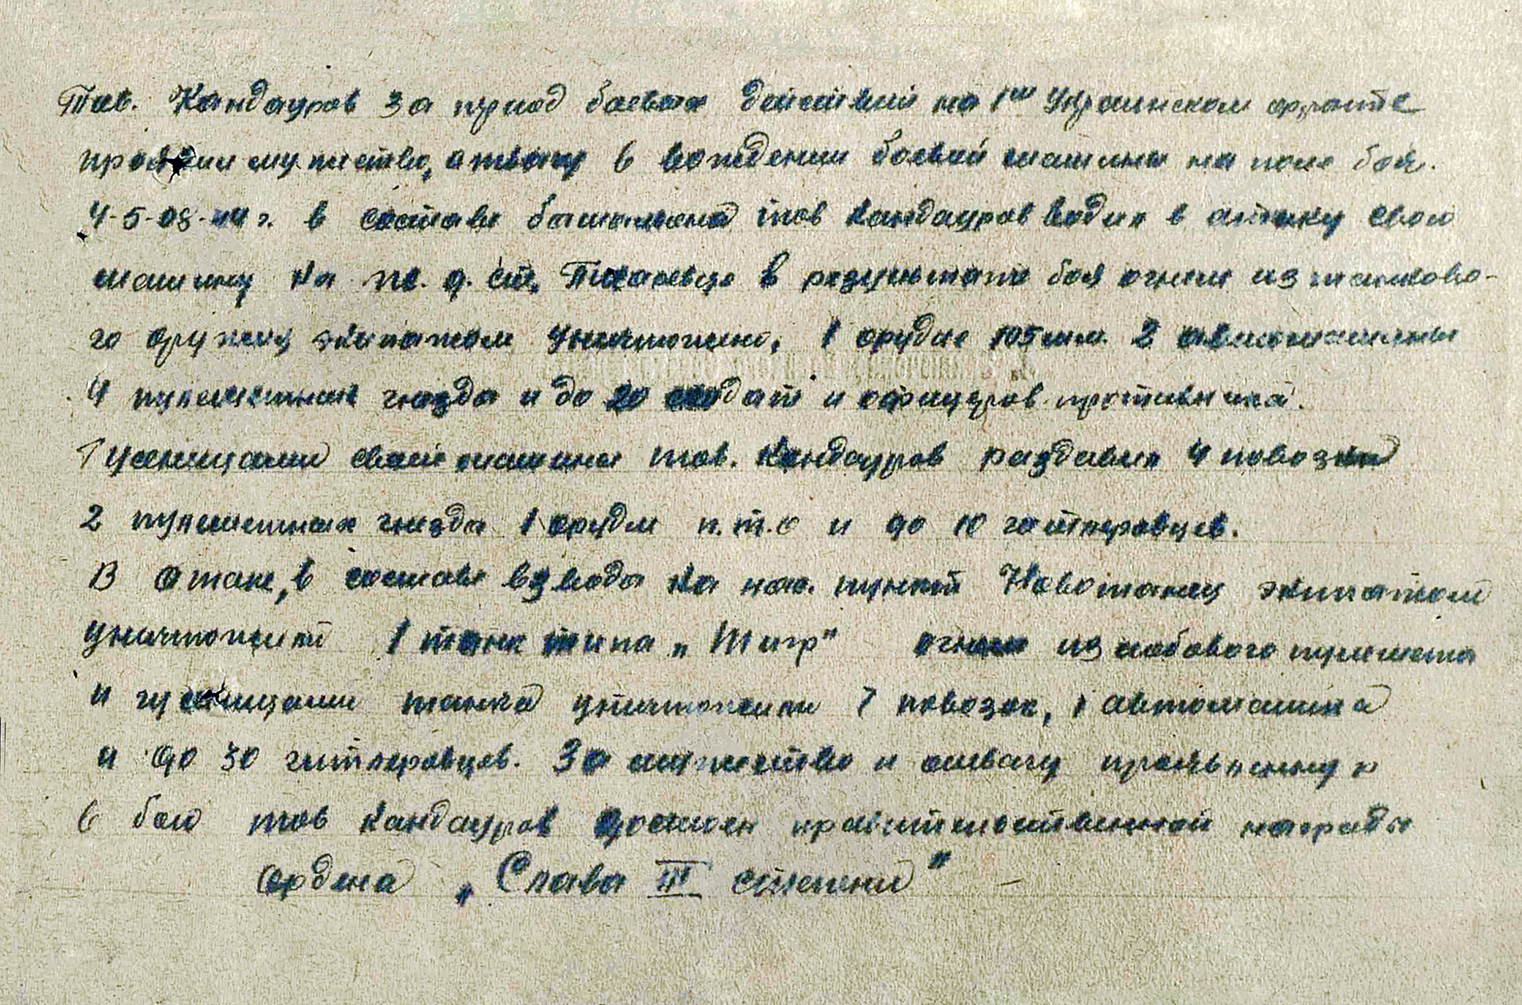 Тов. Кандауров за период боевых действий на 1ом Украинском фронте
проявил мужество, отвагу в вождении боевой машины на поле боя.
4-5-08-44 г. в составе батальона тов Кандауров водил в атаку свою
машину на ж. д. ст. Писаревце в результате боя огнем из танково-
го оружия экипажем уничтожено, 1 орудие 105 мм. 2 автомашины
4 пулеметных гнезда и до 20 солдат и офицеров противника.
Гусеницами своей машины тов. Кандауров раздавил 4 повозки
2 пулеметных гнезда 1 орудие п.т.о и до 10 гитлеровцев.
В атаке, в составе взвода на нас. пункт Новотанец экипажем
уничтожили 1 танк типа „Тигр" огнем из лобового пулемета
и гусеницами танка уничтожили 7 повозок, 1 автомашина
и до 30 гитлеровцев. За мужество и отвагу проявленную
в бою тов Кандауров достоен правительственной награды
Ордена „Слава III степени"